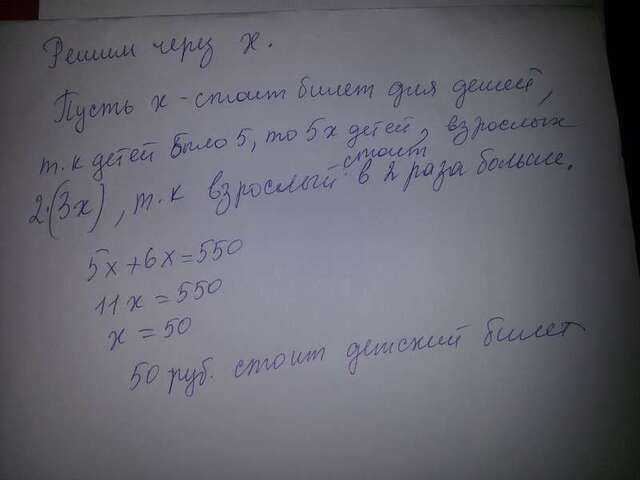 Решим через х.
Пусть х - стоит билет для детей,
т.к детей было 5, то 5х детей, взрослых
2·(3х), т.к взрослый стоит в 2 раза больше.
5х+6х=550
11х=550
х=50
50 руб. стоит детский билет